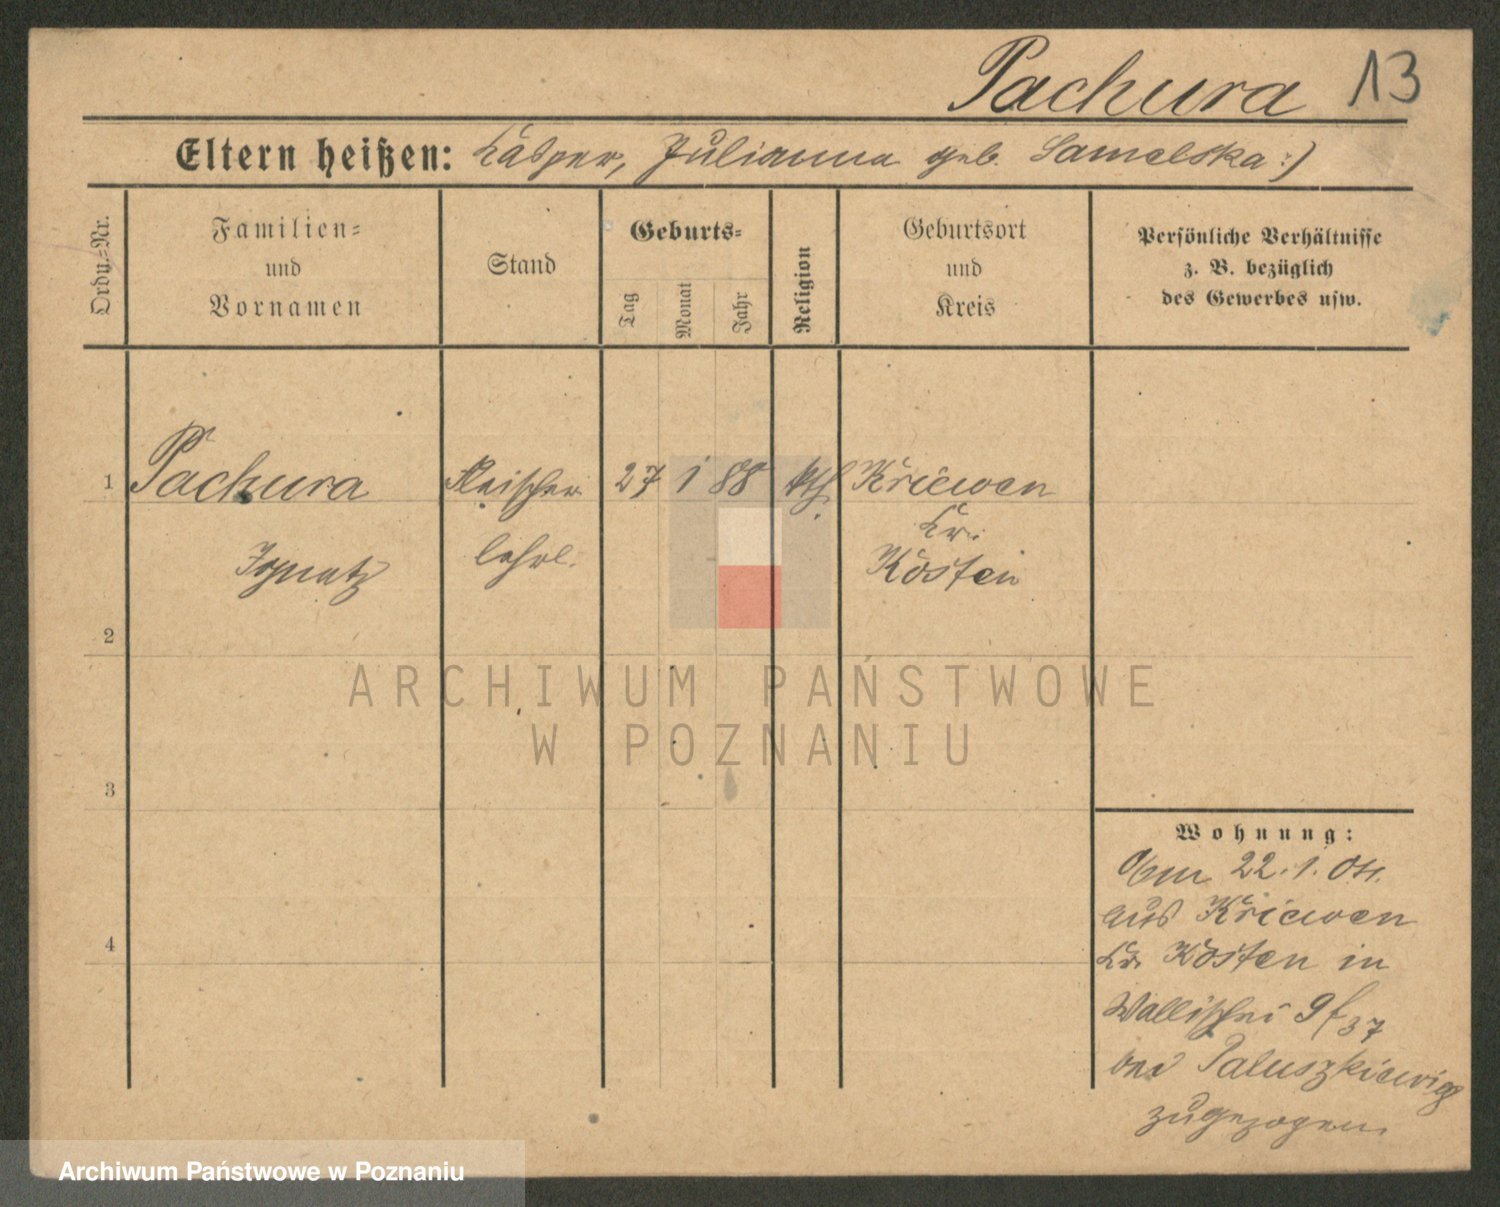 Pachura 13
Eltern heißen: Kasper, Julianna geb. Samelska :)
Ordn.-Nr.
Familien-
und
Vornamen
Stand
Geburts-
Tag
Monat
Jahr
Religion
Geburtsort
und
Kreis
Persönliche Verhältnisse
z. B. bezüglich
des Gewerbes usw.
1 Pachura Fleischer 27 1 88 kth. Kriewen
Kr.
Ignatz lehrl. Kosten
2
3
4
Wohnung:
Am 22. 1. 04.
aus Kriewen
Kr. Kosten in
Wallischei 9/37
bei Paluszkiewicz
zugezogen.
ARCHIWUM PAŃSTWOWE
W POZNANIU
Archiwum Państwowe w Poznaniu